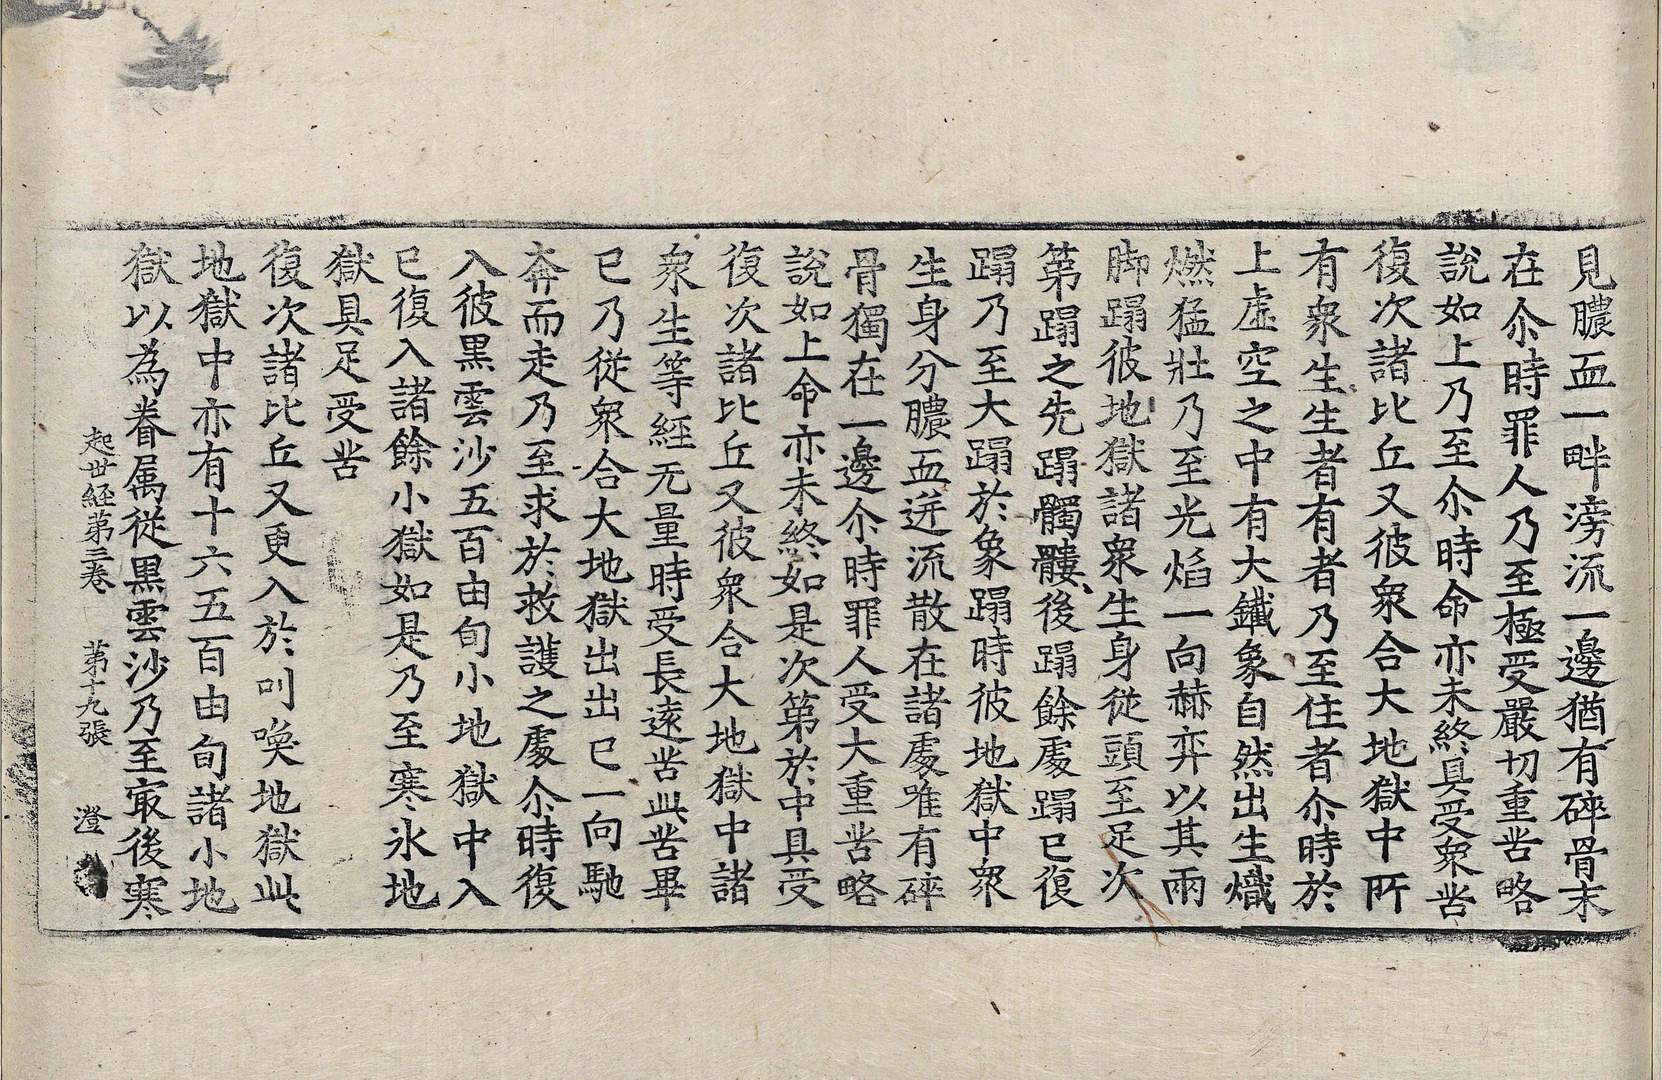 見膿血一畔滂流一邊猶有碎骨末
在尒時罪人乃至極受嚴切重苦略
說如上乃至尒時命亦未終具受衆苦
復次諸比丘又彼衆合大地獄中所
有衆生生者有者乃至住者尒時於
上虛空之中有大鐵象自然出生熾
燃猛壯乃至光焰一向赫弈以其兩
脚蹋彼地獄諸衆生身從頭至足次
第蹋之先蹋髑髏後蹋餘處蹋已復
蹋乃至大蹋於象蹋時彼地獄中衆
生身分膿血迸流散在諸處唯有碎
骨獨在一邊尒時罪人受大重苦略
說如上命亦未終如是次第於中具受
復次諸比丘又彼衆合大地獄中諸
衆生等經无量時受長遠苦此苦畢
已乃從衆合大地獄出出已一向馳
奔而走乃至求於救護之處尒時復
入彼黒雲沙五百由旬小地獄中入
已復入諸餘小獄如是乃至寒氷地
獄具足受苦
復次諸比丘又更入於叫喚地獄此
地獄中亦有十六五百由旬諸小地
獄以為眷属從黒雲沙乃至㝡後寒
起世經第三卷 第十九張 澄